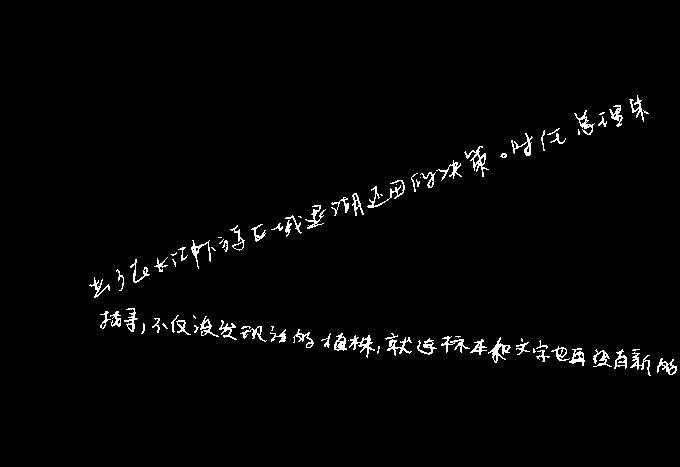 去了在长江中下游区域退湖还田的决策。时任总理朱
找寻,不仅没发现活的植株,就连标本和文字也再没有新的